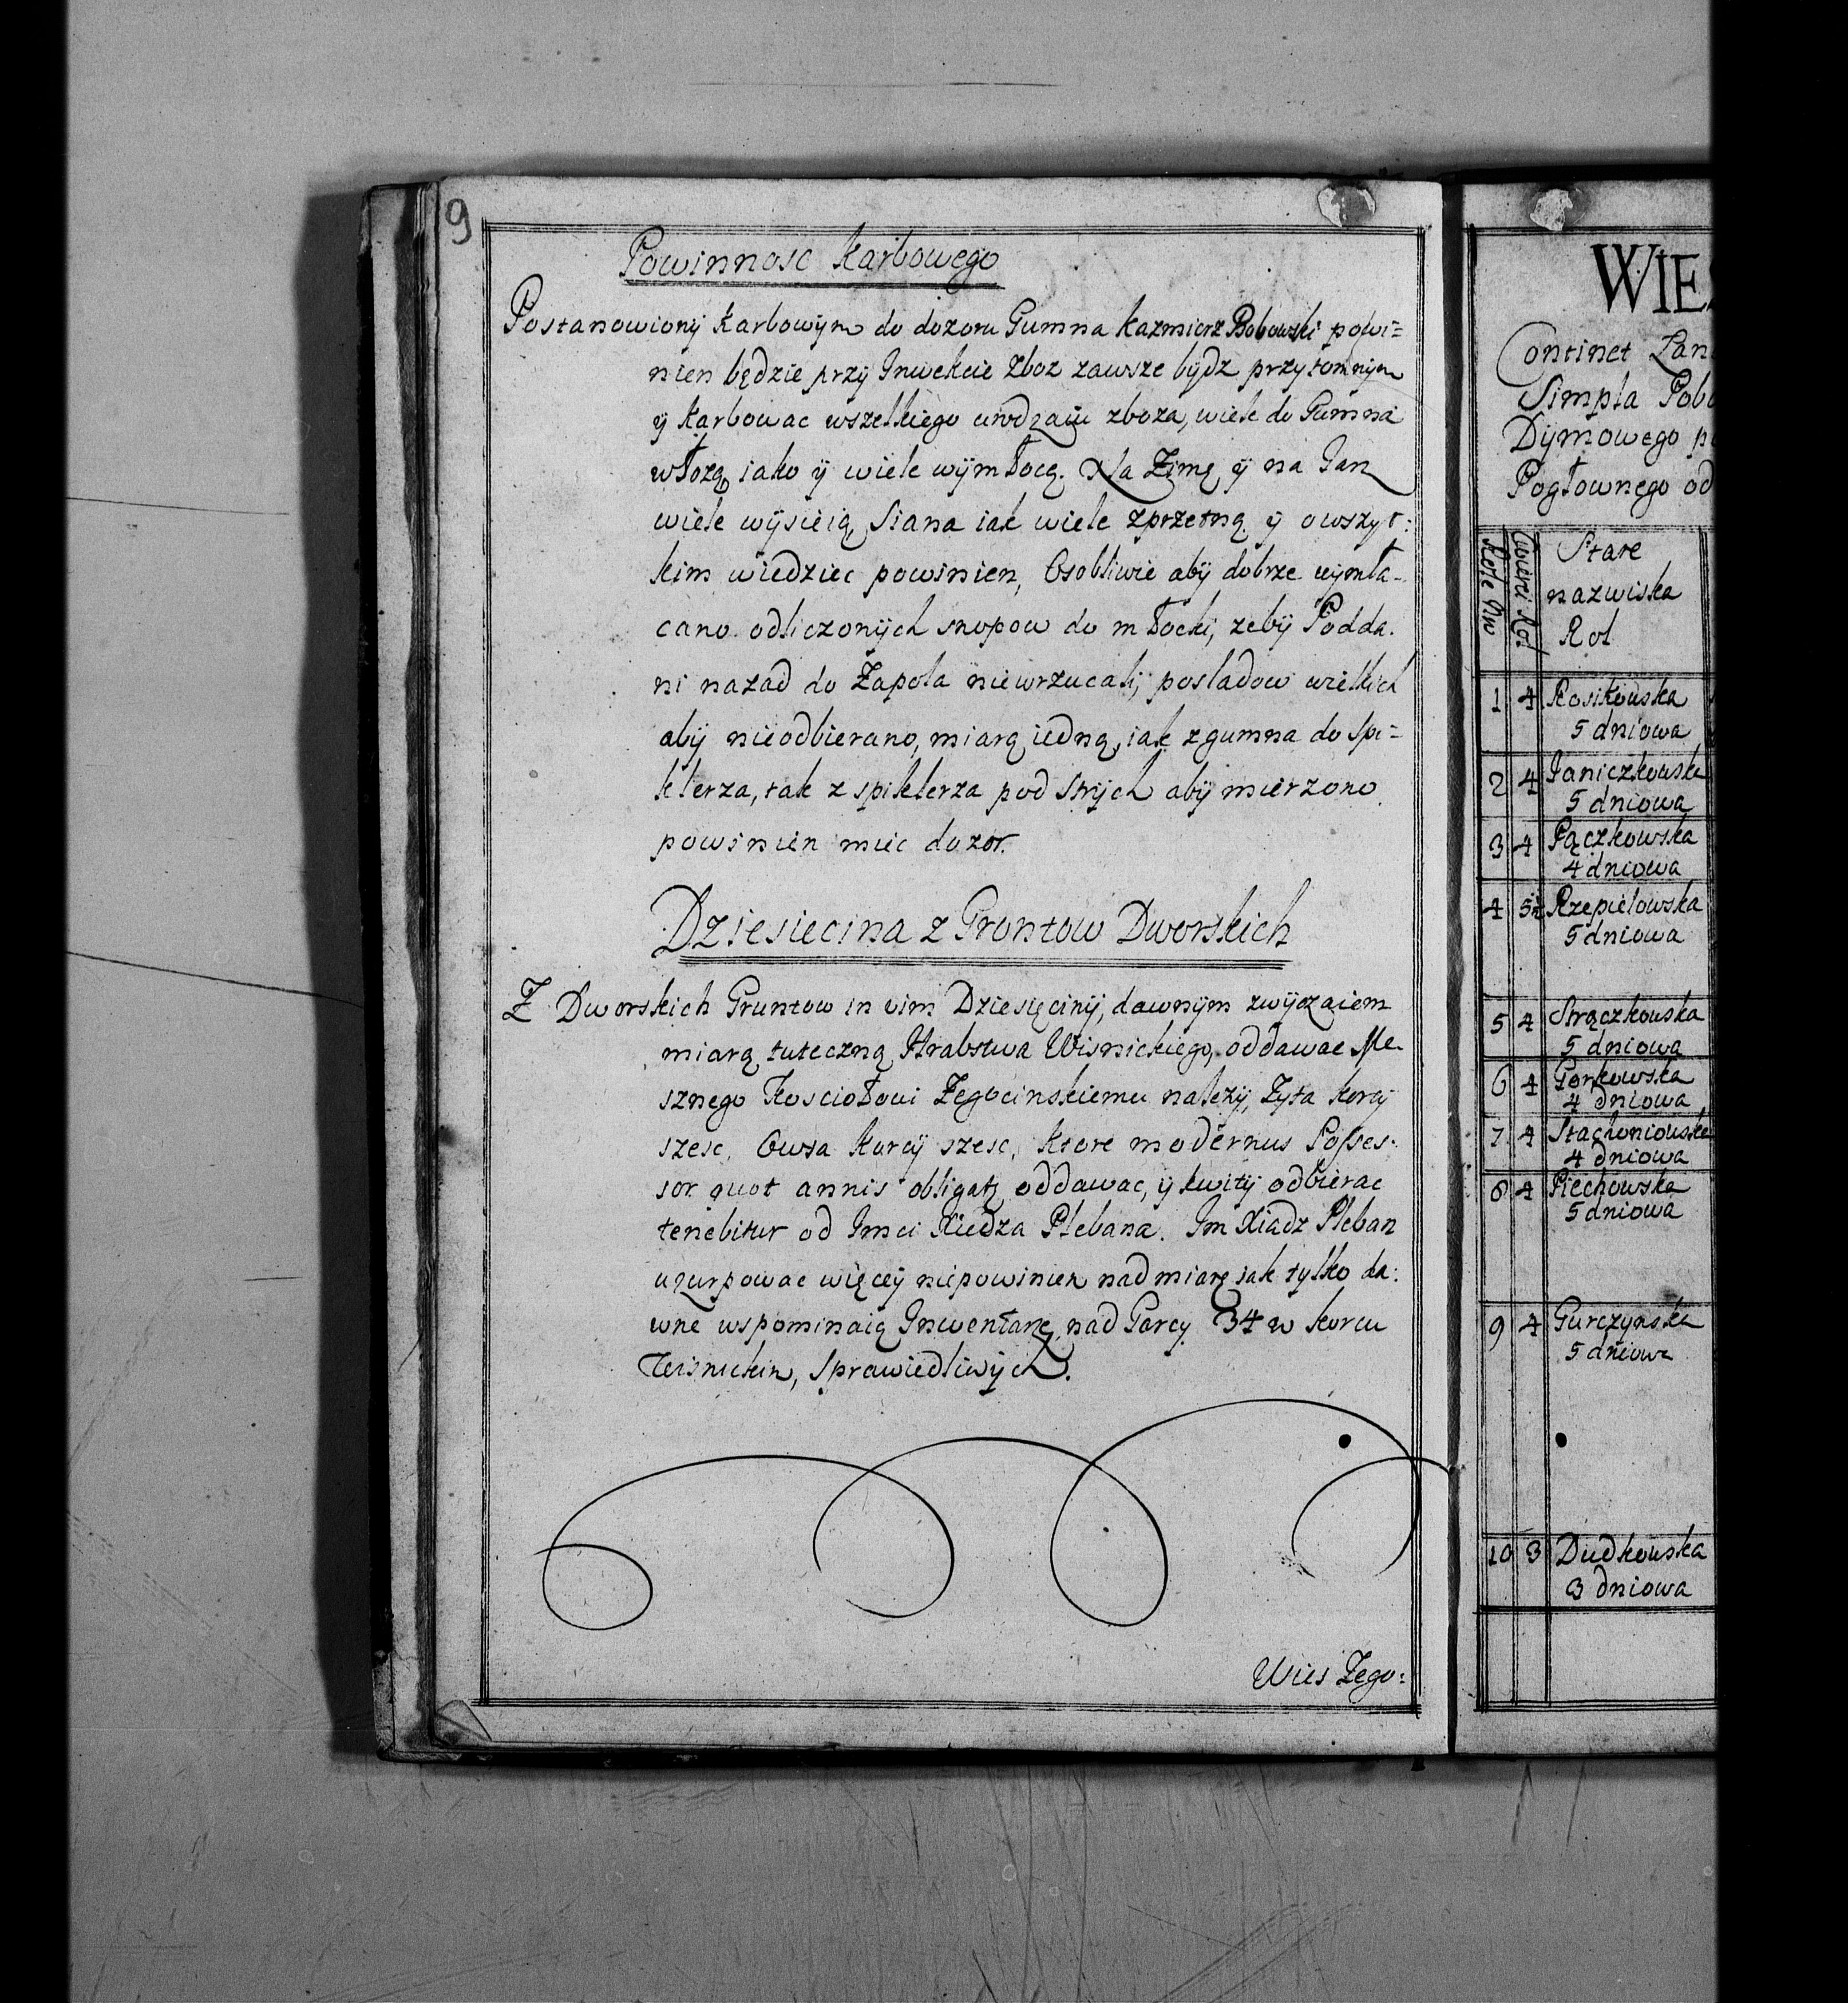 9
Powinnosc Karbowego
Postanowiony Karbowym do dozoru Gumna Kazmierz Bobowski powi=
nien będzie przy Inwekcie Zboz zawsze bydz przytomnym
y Karbowac wszelkiego urodzaiu zboza, wiele do Gumna
włozą, iako y wiele wymłocą. Na Zimę y na Jarz
wiele wysieią, Siana iak wiele zprzetną y owszyt:
kim wiedziec powinien, Osobliwie aby dobrze wymła-
cano odliczonych snopow do młocki, zeby Podda.
ni nazad do Zapola niewrzucali, posladow wielkich
aby nieodbierano, miarą iedną, iak z gumna do Spi=
klerza, tak z spiklerza pod Strych aby mierzono
powinien miec dozor.
Dziesiecina z Grontow Dworskich
Z Dworskich Gruntow in vim Dziesięciny, dawnym zwyczaiem
miarą tuteczną Hrabstwa Wisnickiego, oddawac Me-
sznego Kosciołowi Zegocinskiemu nalezy, Zyta korcy
szesc, Owsa Korcy szesc, Ktore modernus Posses-
sor quot annis obligatz oddawac, y kwity odbierac
tenebitur od Jmci Xiedza Plebana. Jm Xiadz Pleban
uzurpowac więcey niepowinien nad miarę iak tylko da:
wne wspominaią Inwentarze, nad Garcy 34 w korcu
Wisnickim, Sprawiedliwych.
Wies Zego:
WIES
Continet Lan
Simpla Pobo
Dymowego p
Pogłownego od
Role Nro
Cwierci Rol
Stare
nazwiska
Rol
1 4 Rosikowska
5 dniowa
2 4 Janiczkowska
5 dniowa
3 4 Pączkowska
4 dniowa
4 5½ Rzepielowska
5 dniowa
5 4 Strączkowska
5 dniowa
6 4 Gorkowska
4 dniowa
7 4 Stachoniowska
4 dniowa
8 4 Piechowska
5 dniowa
9 4 Gurczynska
5 dniowa
10 3 Dudkowska
3 dniowa